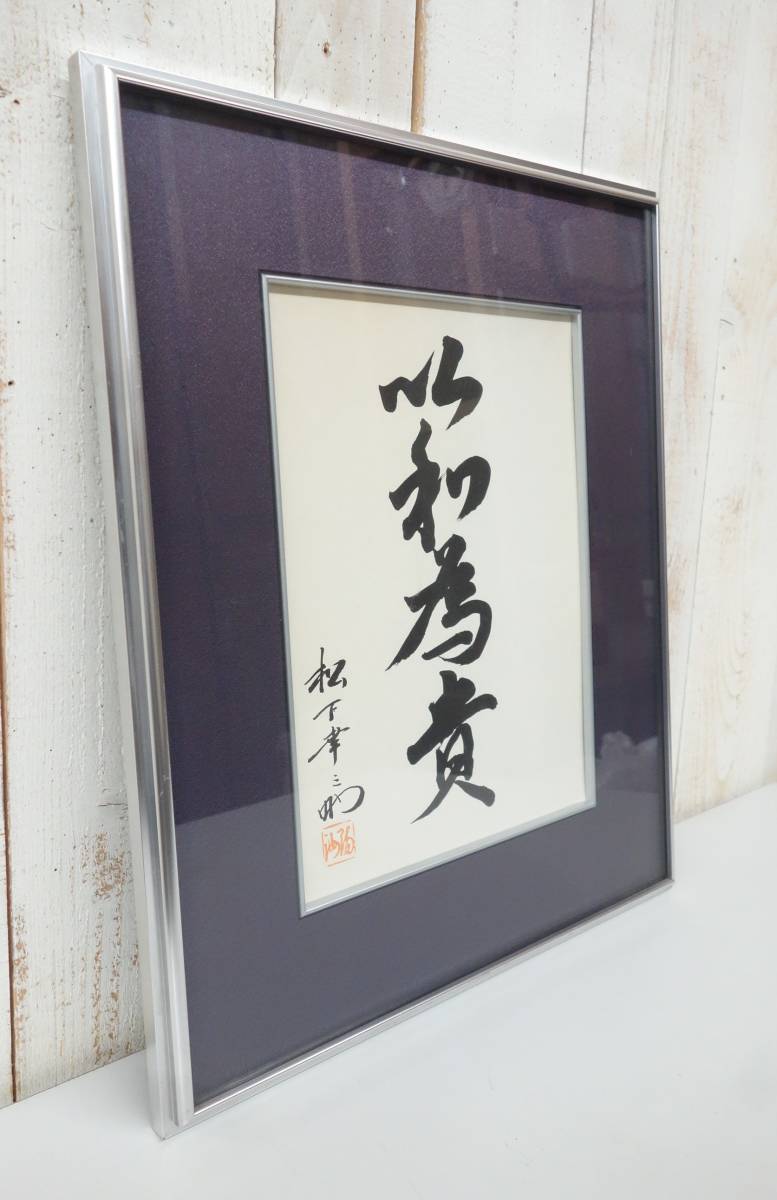 以和為貴
松下幸之助